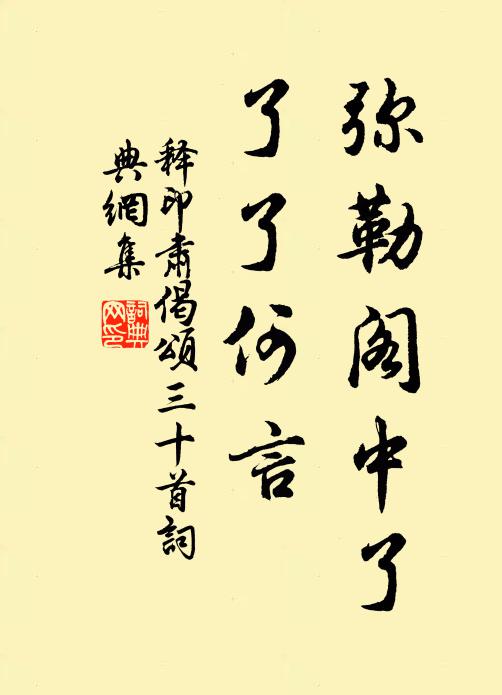 弥勒阁中了
了了何言
释印肃偈頌三十首詞
典網集
詞典
网印